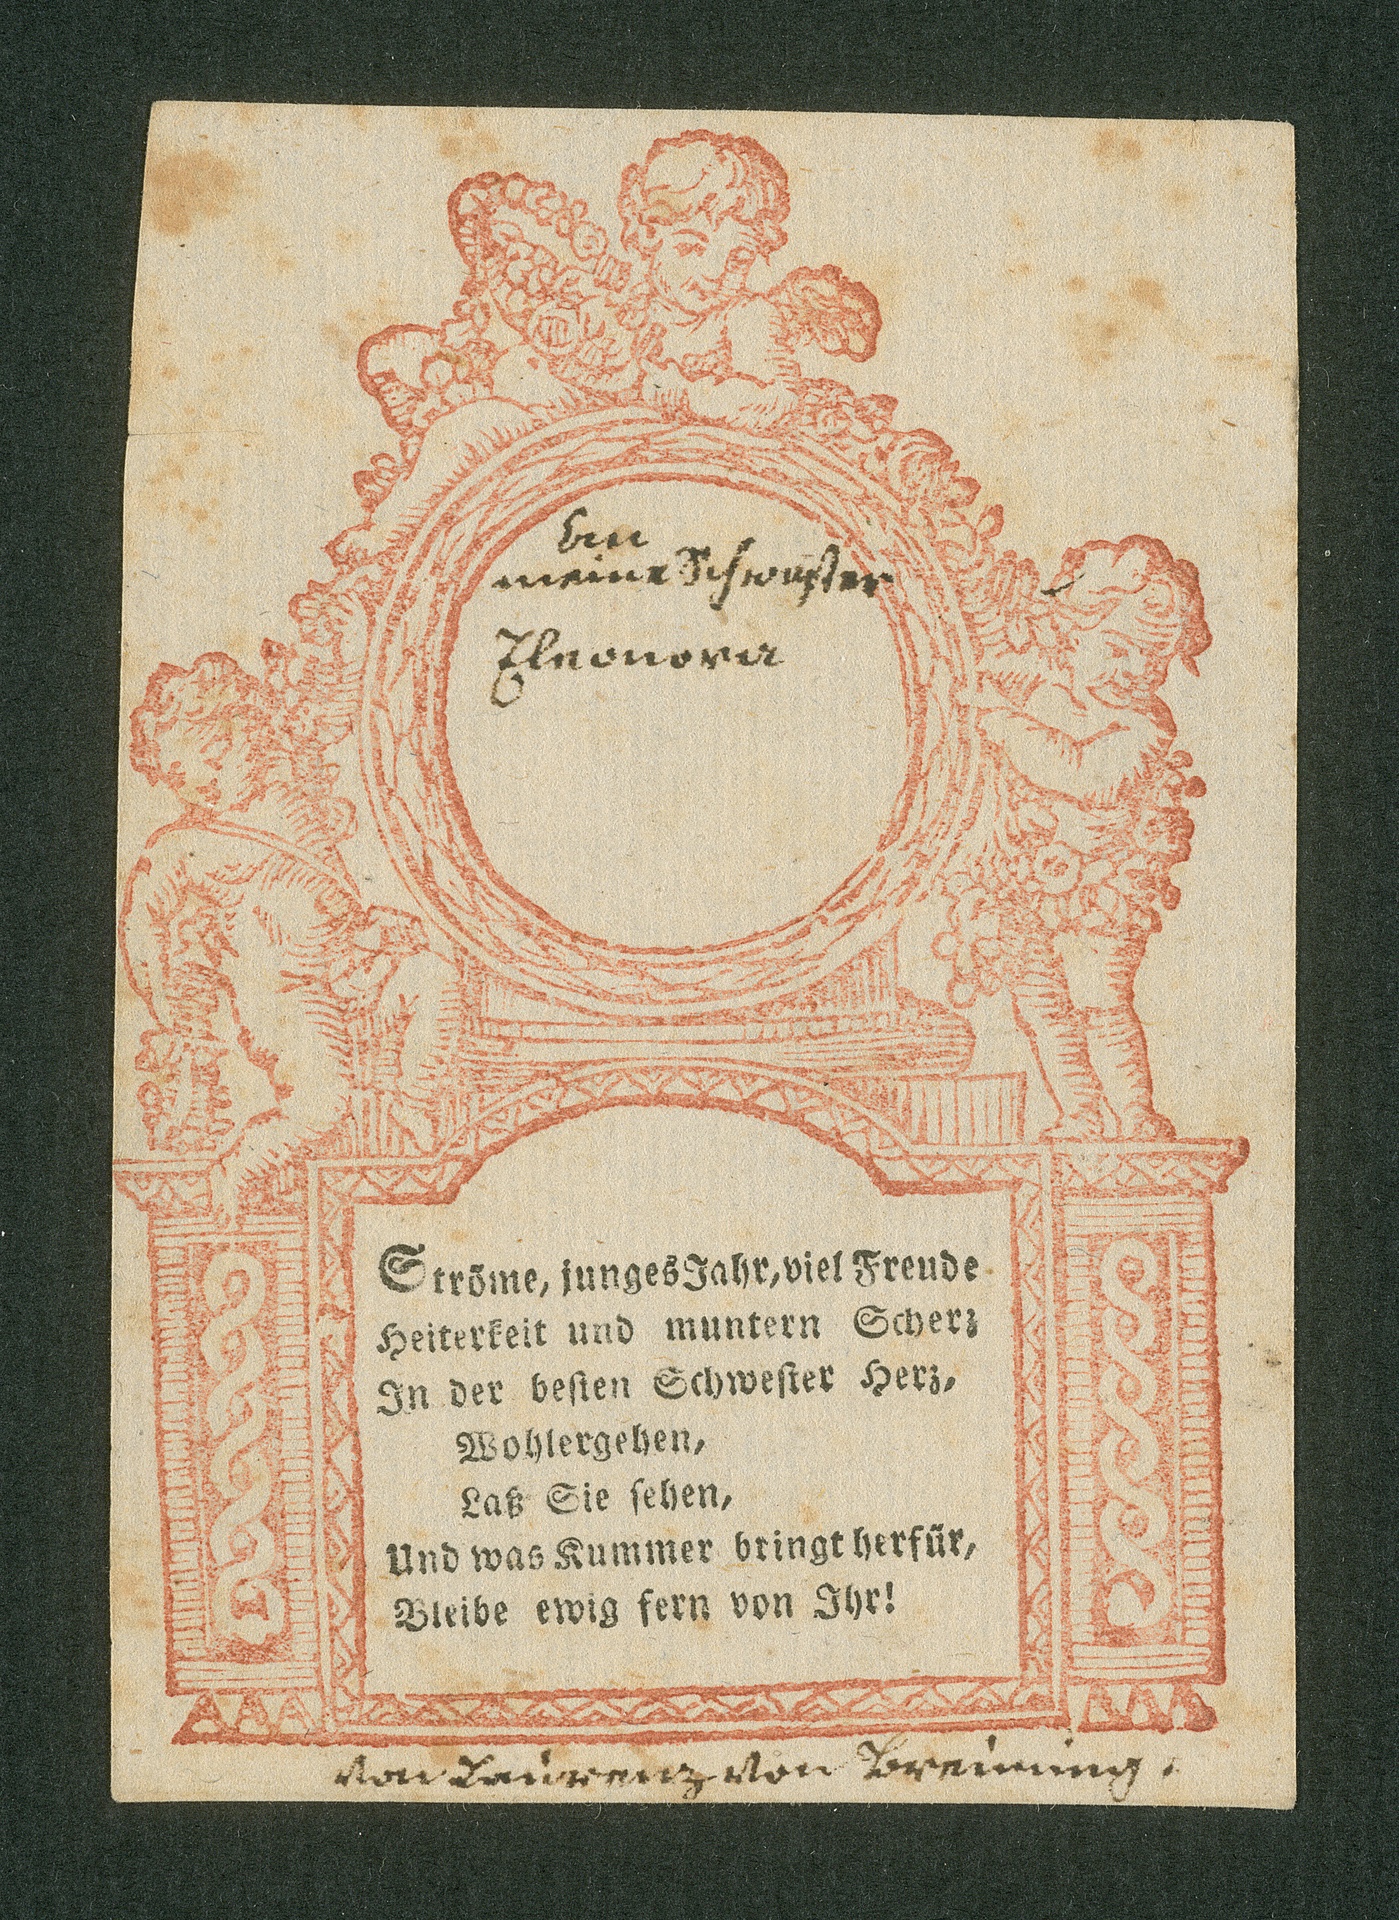 meine Schwester
Eleonora
Ströme, junges Jahr, viel Freude
Heiterkeit und muntern Scherz
In der besten Schwester Herz,
Wohlergehen,
Laß Sie sehen,
Und was Kummer bringt herfür,
Bleibe ewig fern von Ihr!
von Laurenz von Breuning.